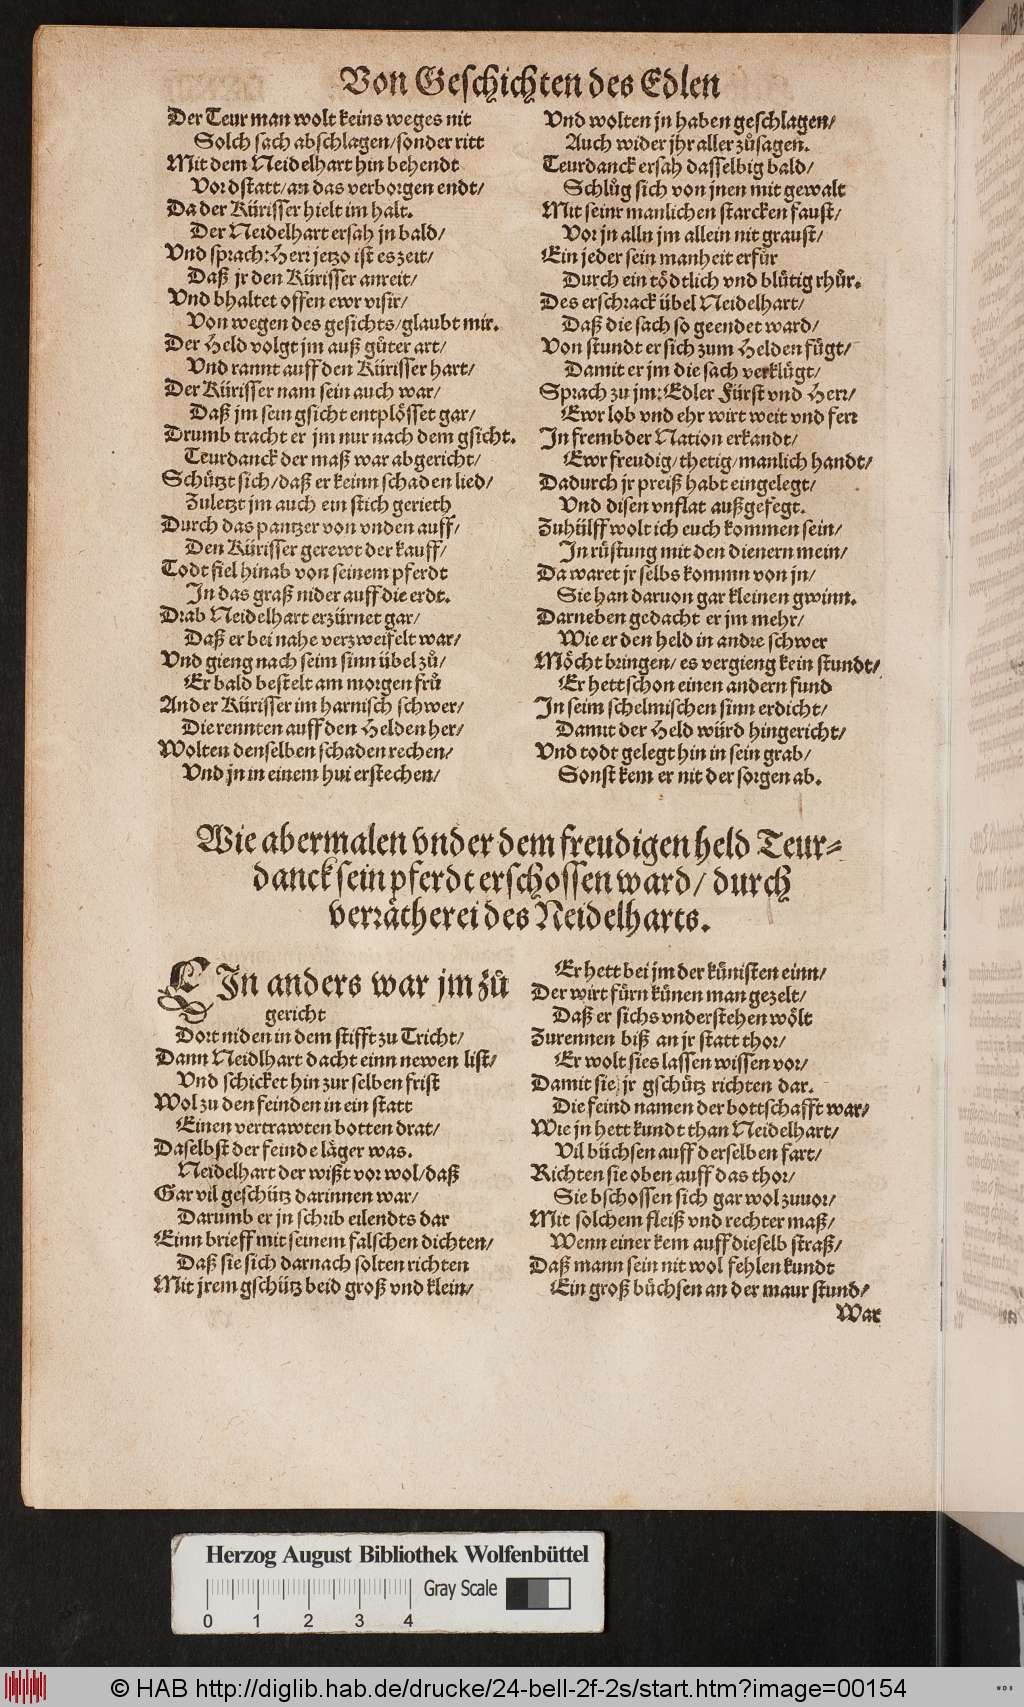 Von Geschichten des Edlen
Der Teur man wolt keins weges nit
Solch sach abschlagen/sonder ritt
Mit dem Neidelhart hin behendt
Vor d statt/an das verborgen endt/
Da der Kürisser hielt im halt.
Der Neidelhart ersah jn bald/
Vnd sprach: Herr jetzo ist es zeit/
Daß jr den Kürisser anreit/
Vnd bhaltet offen ewr visir/
Von wegen des gesichts/glaubt mir.
Der Held volgt jm auß guͦter art/
Vnd rannt auff den Kürisser hart/
Der Kürisser nam sein auch war/
Daß jm sein gsicht entplösset gar/
Drumb tracht er jm nur nach dem gsicht.
Teurdanck der maß war abgericht/
Schützt sich/daß er keinn schaden lied/
Zuletzt jm auch ein stich gerieth
Durch das pantzer von vnden auff/
Den Kürisser gerewt der kauff/
Todt fiel hinab von seinem pferdt
In das graß nider auff die erdt.
Drab Neidelhart erzürnet gar/
Daß er bei nahe verzweifelt war/
Vnd gieng nach seim sinn übel zuͦ/
Er bald bestelt am morgen fruͦ
Ander Kürisser im harnisch schwer/
Die rennten auff den Helden her/
Wolten denselben schaden rechen/
Vnd jn in einem hui erstechen/
Vnd wolten jn haben geschlagen/
Auch wider jhr aller zuͦsagen.
Teurdanck ersah dasselbig bald/
Schluͦg sich von jnen mit gewalt
Mit seinr manlichen starcken faust/
Vor jn alln jm allein nit graust/
Ein jeder sein manheit erfuͦr
Durch ein tödtlich vnd bluͦtig rhuͦr.
Des erschrack übel Neidelhart/
Daß die sach so geendet ward/
Von stundt er sich zum Helden fügt/
Damit er jm die sach verklügt/
Sprach zu jm: Edler Fürst vnd Herr/
Ewr lob vnd ehr wirt weit vnd ferr
In frembder Nation erkandt/
Ewr freudig/thetig/manlich handt/
Dadurch jr preiß habt eingelegt/
Vnd disen vnflat außgefegt.
Zuhülff wolt ich euch kommen sein/
In rüstung mit den dienern mein/
Da waret jr selbs kommn von jn/
Sie han daruon gar kleinen gwinn.
Darneben gedacht er jm mehr/
Wie er den held in andre schwer
Möcht bringen/es vergieng kein stundt/
Er hett schon einen andern fund
In seim schelmischen sinn erdicht/
Damit der Held würd hingericht/
Vnd todt gelegt hin in sein grab/
Sonst kem er nit der sorgen ab.
Wie abermalen vnder dem freudigen held Teur-
danck sein pferdt erschossen ward/durch
verrätherei des Neidelharts.
EIn anders war jm zuͦ
gericht
Dort niden in dem stifft zu Tricht/
Dann Neidlhart dacht einn newen list/
Vnd schicket hin zur selben frist
Wol zu den feinden in ein statt
Einen vertrawten botten drat/
Daselbst der feinde läger was.
Neidelhart der wißt vor wol/daß
Gar vil geschütz darinnen war/
Darumb er jn schrib eilendts dar
Einn brieff mit seinem falschen dichten/
Daß sie sich darnach solten richten
Mit jrem gschütz beid groß vnd klein/
Er hett bei jm der künisten einn/
Der wirt fürn künen man gezelt/
Daß er sichs vnderstehen wölt
Zurennen biß an jr statt thor/
Er wolt sies lassen wissen vor/
Damit sie jr gschütz richten dar.
Die feind namen der bottschafft war/
Wie jn hett kundt than Neidelhart/
Vil büchsen auff derselben fart/
Richten sie oben auff das thor/
Sie bschossen sich gar wol zuuor/
Mit solchem fleiß vnd rechter maß/
Wenn einer kem auff dieselb straß/
Daß mann sein nit wol fehlen kundt
Ein groß büchsen an der maur stund/
War
Herzog August Bibliothek Wolfenbüttel
Gray Scale
0 1 2 3 4
© HAB http://diglib.hab.de/drucke/24-bell-2f-2s/start.htm?image=00154